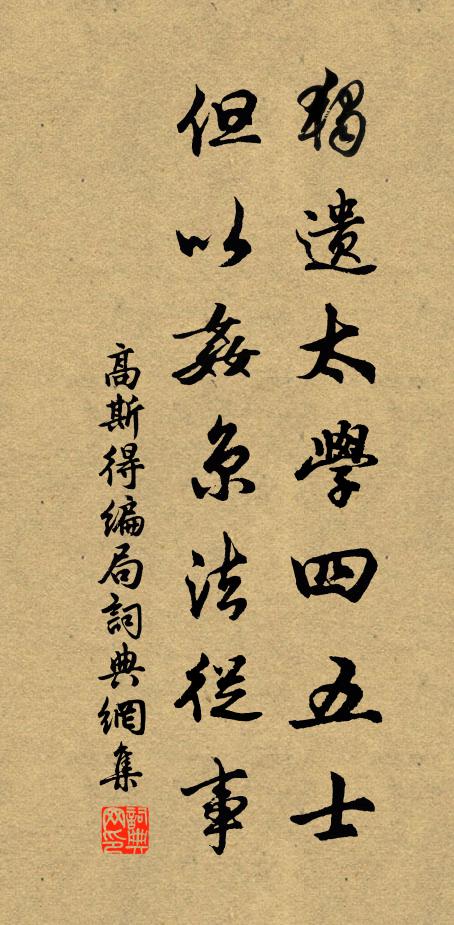 獨遺太學四五士
但以姦京法從事
高斯得編局詞典網集
詞典
网印